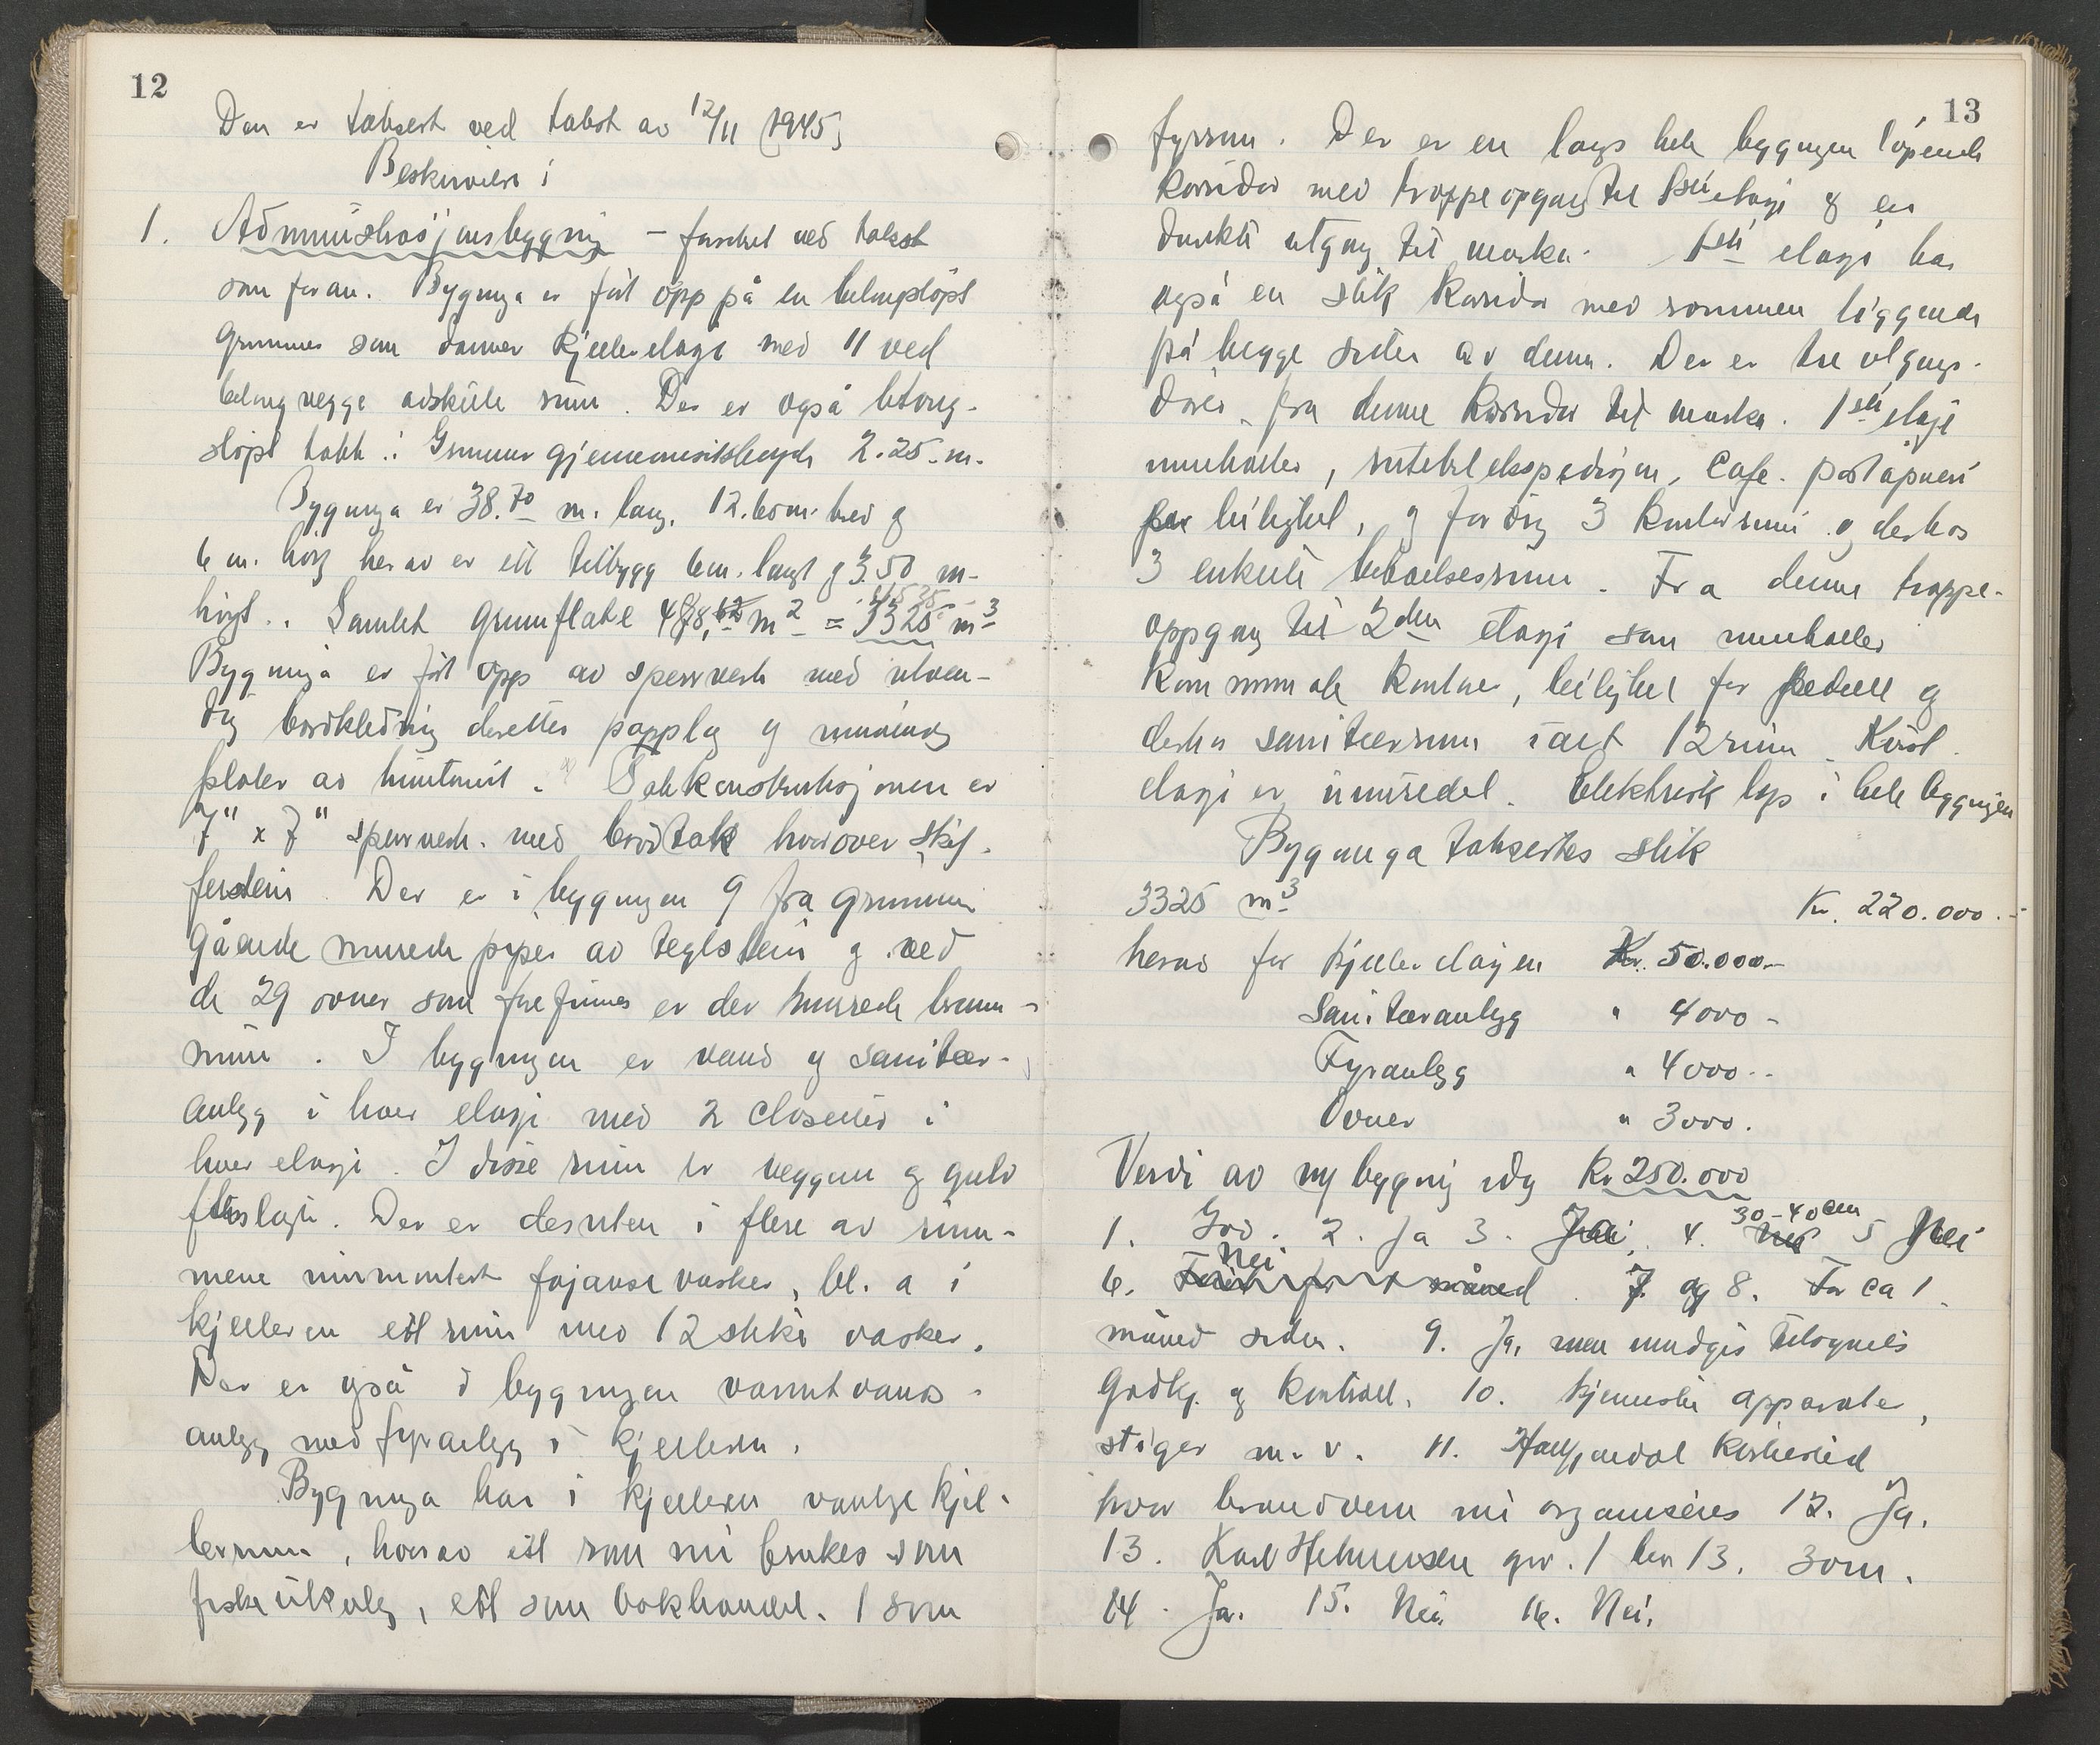 12
Den er taksert ved takst av 12/11 1945
Beskrivelse:
1. Administrasjonsbygning – forsikret ved takst
som foran. Bygninga er ført opp på en betongstøpt
grunnmur som danner kjelleretage med 11 ved
betongvegge adskilte rum. Der er også betong-
støpt takk. Grunnmur gjennemsnitshøyde 2.25 m.
Bygninga er 38.70 m. lang, 12.60 m. bred og
6 m. høy herav er ett tilbygg 6 m. langt og 3.50 m.
høyt. Samlet grunnflate 488, m² = 3325 m³
Bygninga er ført opp av sperrverk med utven-
dig bordkledning deretter papplag og innvendig
plater av huntonit. Takkonstruksjonen er
7" x 7" sperrverk med bordtak hvorover skif-
ferstein. Der er i bygningen 9 fra grunnen
gående murede piper av teglstein og ved
de 29 ovner som forefinnes er der murede brann-
mur. I bygningen er vand og sanitær-
anlegg i hver etasje med 2 closetter i
hver etasje. I disse rum er veggen og gulv
fliselagte. Der er desuten i flere av rum-
mene innmontert fajanse vasker, bl. a i
kjelleren ett rum med 12 slike vasker.
Der er også i bygningen varmtvands-
anlegg med fyranlegg i kjelleren.
Bygninga har i kjelleren vanlige kjel-
lerrum, hvorav ett som nu brukes som
fiskeutsalg, ett som bokhandel. 1 som
13
fyrrum. Der er en langs hele bygningen løpende
korridor med trappeopgang til 1ste etasje og en
direkte utgang til marka. 1ste etasje har
også en slik korridor med rommen liggende
på begge sider av denne. Der er tre utgangs-
dører fra denne korridor til marka. 1ste etasje
inneholder, rutebilekspedisjon, Cafe. poståpneri
leilighet, og forøvrig 3 kontorrum og derhos
3 enkelte beboelsesrum. Fra denne trappe-
oppgang til 2den etasje som inneholder
kommunale kontorer, leilighet for pedell og
derhos sanitærrum ialt 12 rum. Kvist
etasje er uinnredet. Elektrisk lys i hele bygningen
Bygninga takseres slik
3325 m³ Kr. 220.000.-
herav for kjelleretasjen Kr. 50.000.-
Sanitæranlegg " 4000 -
Fyranlegg " 4000 --
Ovner " 3000.
Verdi av ny bygning idag Kr 250.000
1. God. 2. Ja 3. 4. 30-40 cm 5 Nei
6. Nei 7. og 8. For ca 1
måned siden. 9. Ja, men unntagen tilsynets
godkj. og kontroll. 10. kjemiske apparater,
stiger m. v. 11. Kirkested
hvor brandvern nu organiseres 12. Ja.
13. Karl Helmersen gnr. 1 bnr 13. 30 m.
14. Ja. 15. Nei. 16. Nei.